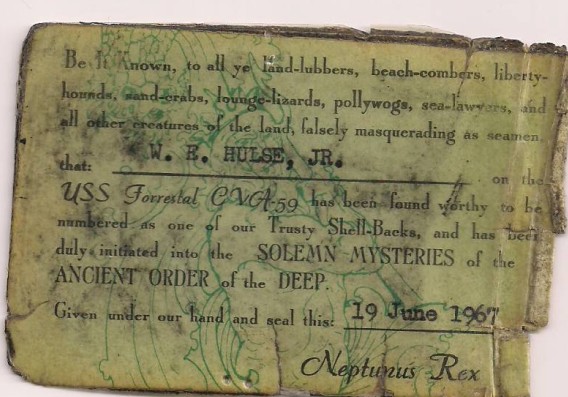 Be It Known, to all ye land-lubbers, beach-combers, liberty-
hounds, sand-crabs, lounge-lizards, pollywogs, sea-lawyers, and
all other creatures of the land, falsely masquerading as seamen,
that: W. E. HULSE, JR. on the
USS Forrestal CVA-59 has been found worthy to be
numbered as one of our Trusty Shell-Backs, and has been
duly initiated into the SOLEMN MYSTERIES of the
ANCIENT ORDER of the DEEP.
Given under our hand and seal this: 19 June 1967
Neptunus Rex